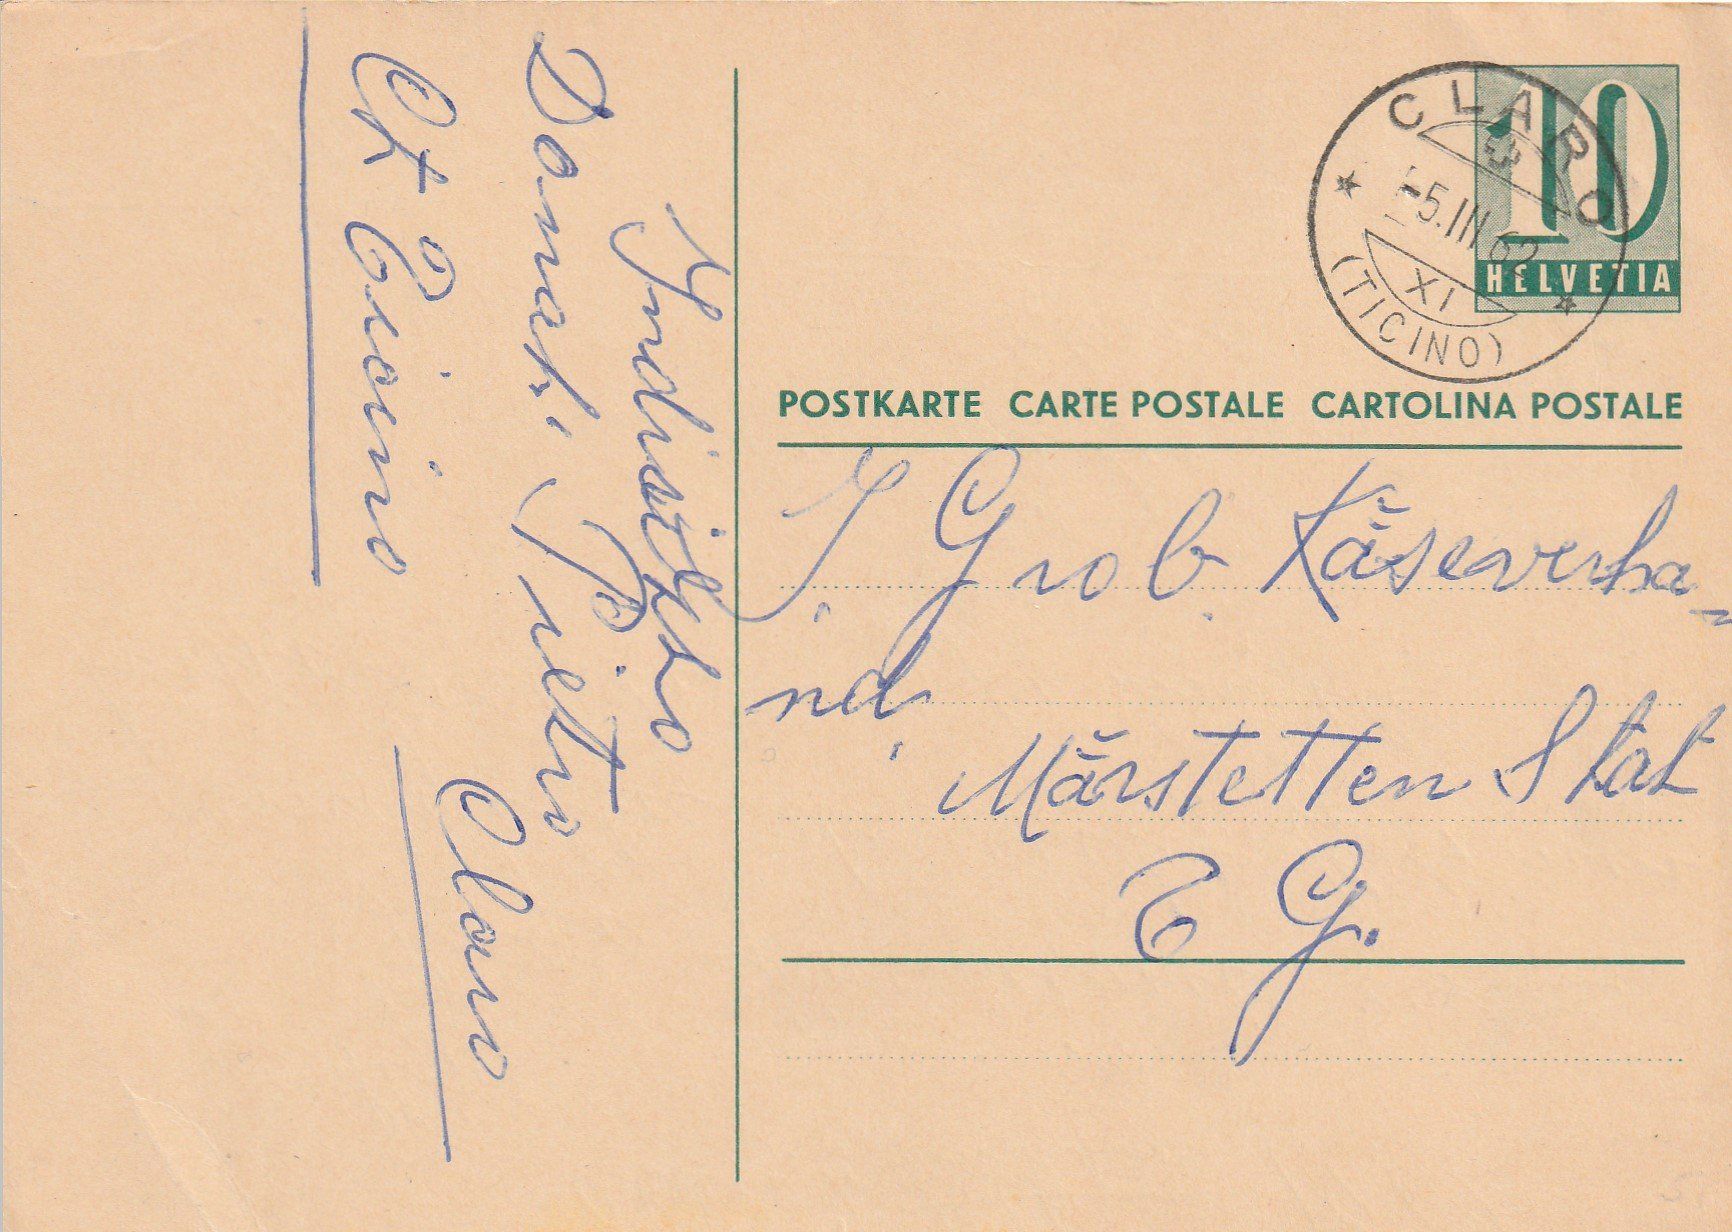 Indirizzo
Donati Pietro
Claro
Ct Ticino
10
HELVETIA
CLARO
-5.III 62
XI
(TICINO)
POSTKARTE CARTE POSTALE CARTOLINA POSTALE
J. Grob. Käseverha-
nd.
Märstetten Stat
T G.